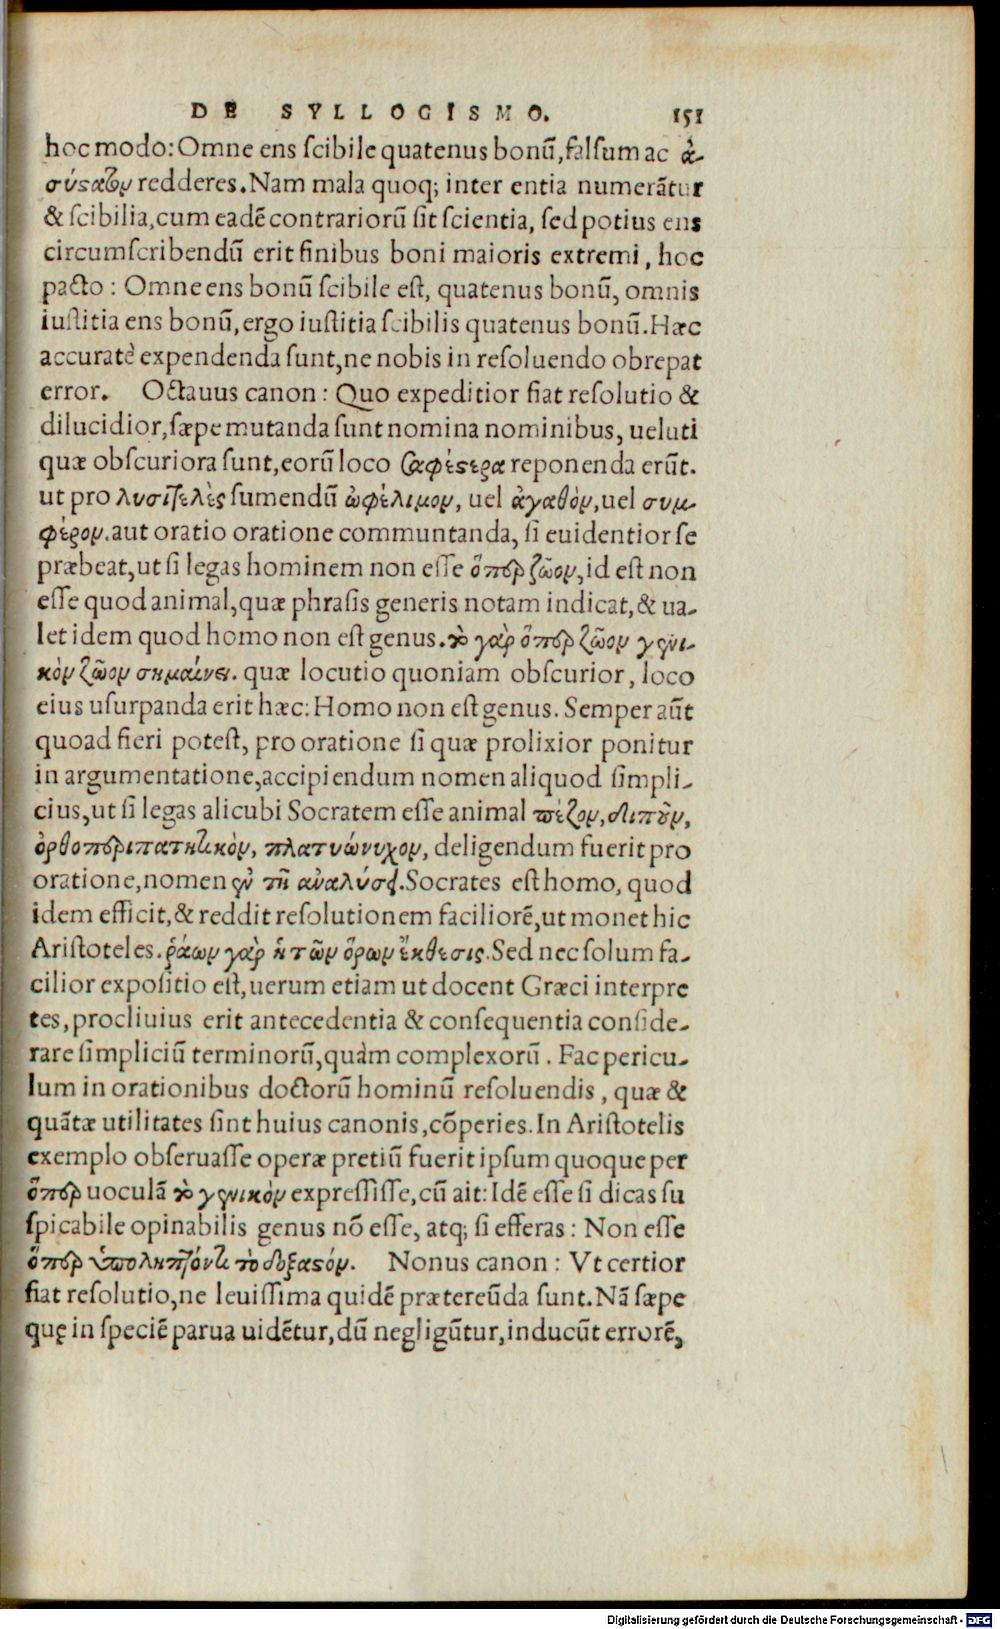 DE SYLLOGISMO. 151
hoc modo: Omne ens scibile quatenus bonū, falsum ac ἀ-
σύστατον redderes. Nam mala quoq; inter entia numerātur
& scibilia, cum eadē contrariorū sit scientia, sed potius ens
circumscribendū erit finibus boni maioris extremi, hoc
pacto: Omne ens bonū scibile est, quatenus bonū, omnis
iustitia ens bonū, ergo iustitia scibilis quatenus bonū. Hæc
accuratè expendenda sunt, ne nobis in resoluendo obrepat
error. Octauus canon: Quo expeditior fiat resolutio &
dilucidior, sæpe mutanda sunt nomina nominibus, ueluti
quæ obscuriora sunt, eorū loco σαφέστερα reponenda erūt.
ut pro λυσιτελὲς sumendū ὠφέλιμον, uel ἀγαθὸν, uel συμ-
φέρον. aut oratio oratione communtanda, si euidentior se
præbeat, ut si legas hominem non esse ὅπερ ζῶον, id est non
esse quod animal, quæ phrasis generis notam indicat, & ua-
let idem quod homo non est genus. τὸ γὰρ ὅπερ ζῶον γενι-
κὸν ζῶον σημαίνει. quæ locutio quoniam obscurior, loco
eius usurpanda erit hæc: Homo non est genus. Semper aūt
quoad fieri potest, pro oratione si quæ prolixior ponitur
in argumentatione, accipiendum nomen aliquod simpli-
cius, ut si legas alicubi Socratem esse animal πέζον, δίπουν,
ὀρθοπεριπατητικὸν, πλατυώνυχον, deligendum fuerit pro
oratione, nomen ἐν τῇ ἀναλύσει. Socrates est homo, quod
idem efficit, & reddit resolutionem faciliorē, ut monet hic
Aristoteles. ῥάων γὰρ ἡ τῶν ὅρων ἔκθεσις. Sed nec solum fa-
cilior expositio est, uerum etiam ut docent Græci interpre
tes, procliuius erit antecedentia & consequentia conside-
rare simpliciū terminorū, quàm complexorū. Fac pericu-
lum in orationibus doctorū hominū resoluendis, quæ &
quātæ utilitates sint huius canonis, cōperies. In Aristotelis
exemplo obseruasse operæ pretiū fuerit ipsum quoque per
ὅπερ uoculā τὸ γενικὸν expressisse, cū ait: Idē esse si dicas su
spicabile opinabilis genus nō esse, atq; si efferas: Non esse
ὅπερ ὑποληπτόν τι τὸ δοξαστόν. Nonus canon: Vt certior
fiat resolutio, ne leuissima quidē prætereūda sunt. Nā sæpe
quę in speciē parua uidētur, dū negligūtur, inducūt errorē,
Digitalisierung gefördert durch die Deutsche Forschungsgemeinschaft - DFG